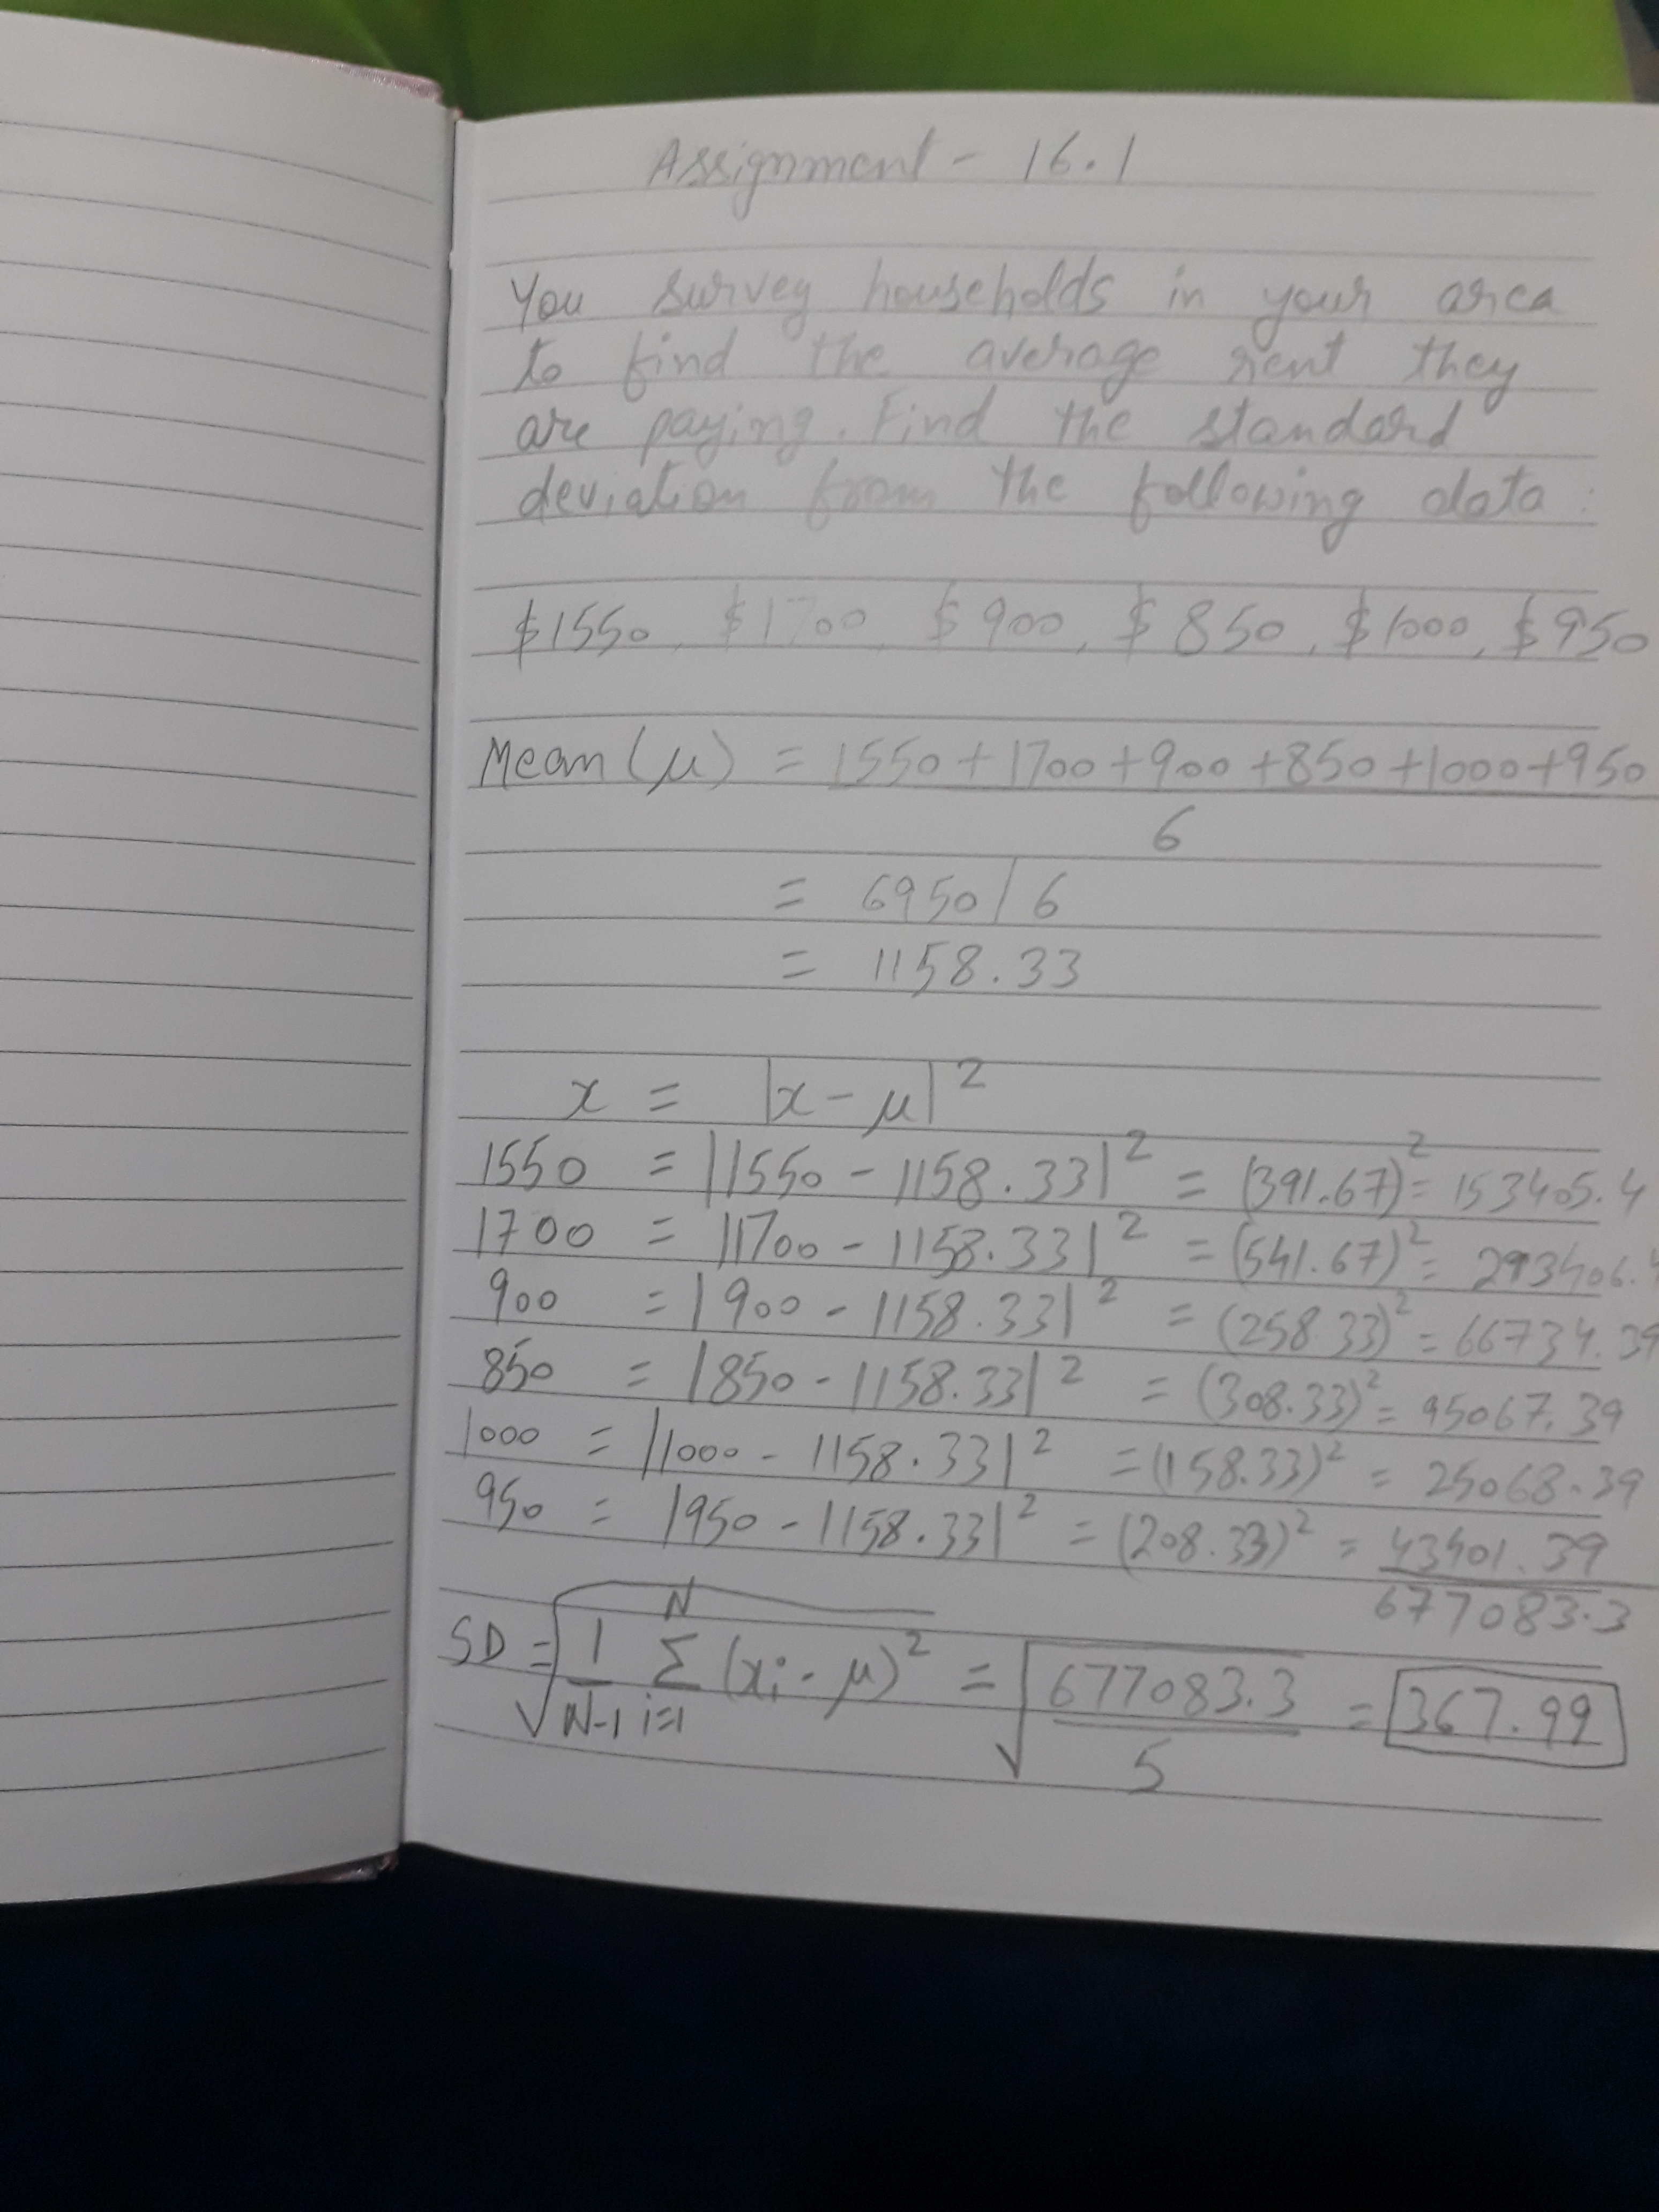 Assignment - 16.1
You survey households in your area
to find the average rent they
are paying. Find the standard
deviation from the following data:
$1550, $1700, $900, $850, $1000, $950
Mean (μ) = 1550+1700+900+850+1000+950
6
= 6950/6
= 1158.33
x = |x-μ|²
1550 = |1550 - 1158.33|² = (391.67)² = 153405.4
1700 = |1700 - 1158.33|² = (541.67)² = 293406.4
900 = |900 - 1158.33|² = (258.33)² = 66734.39
850 = |850 - 1158.33|² = (308.33)² = 95067.39
1000 = |1000 - 1158.33|² = (158.33)² = 25068.39
950 = |950 - 1158.33|² = (208.33)² = 43401.39
677083.3
SD = √ 1/N-1 N Σ i=1 (xi - μ)² = √ 677083.3/5 = 367.99